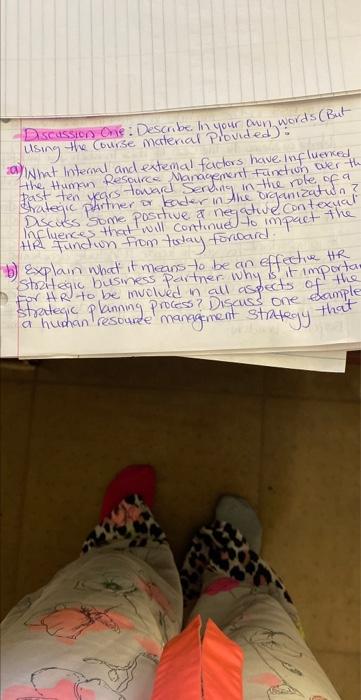 Discussion One: Describe In your own words (But
using the course material Provided):
a) What Internal and external factors have Influenced
the Human Resource Management Function over the
Past ten years toward Serving in the role of a
Strategic partner or leader in the organization?
Discuss Some positive & negative contexual
Influences that will continued to impact the
HR function from today forward.
b) Explain what it means to be an effective HR
Strategic business Partner. Why is it importan
For HR to be involved in all aspects of the
strategic planning process? Discuss one example
a human resource management strategy that